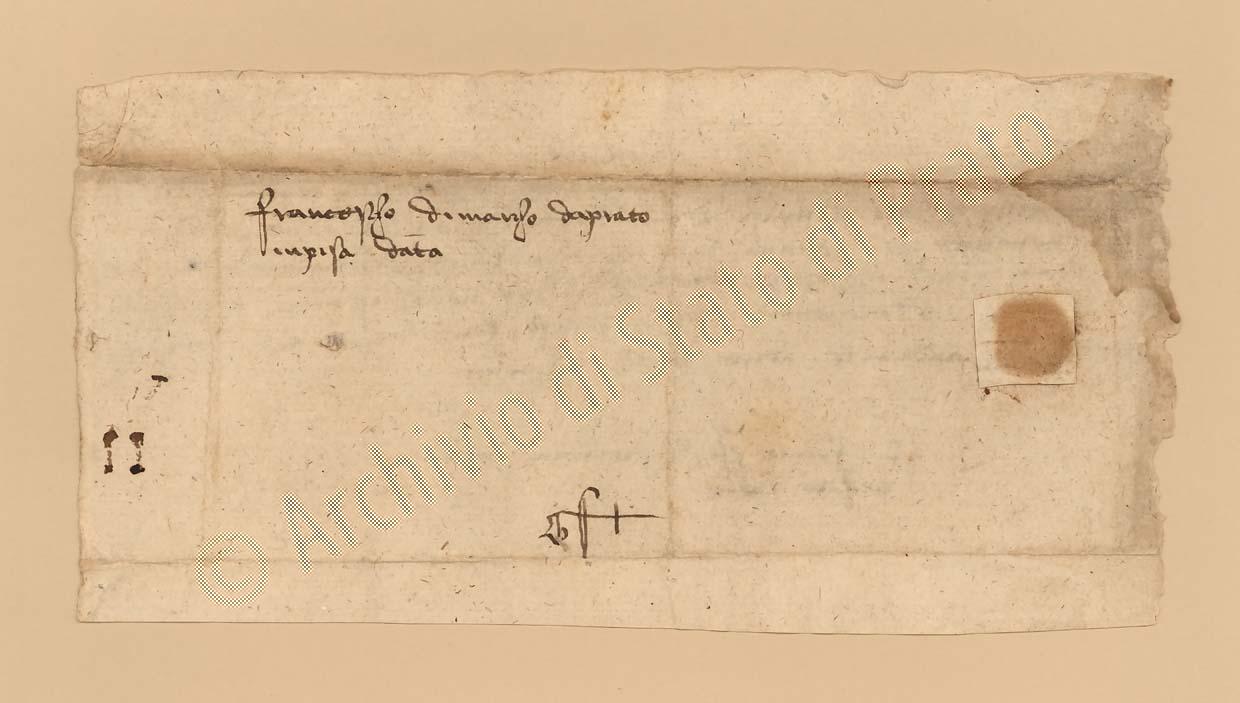 francescho dimarcho daprato
inpisa data
© Archivio di Stato di Prato